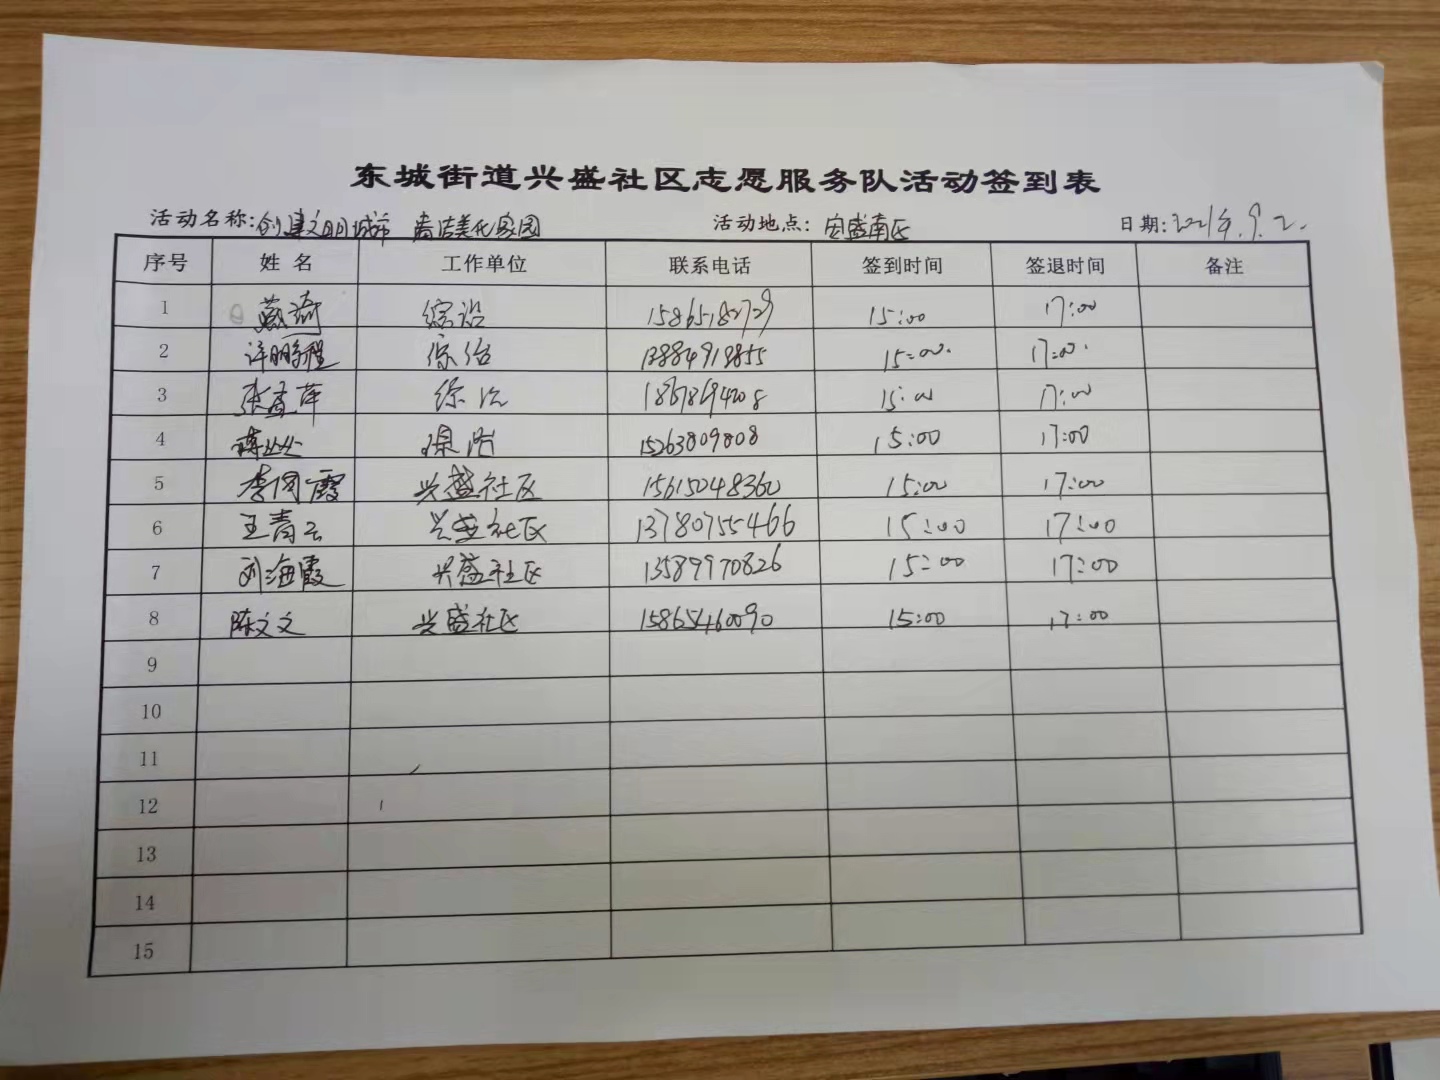 东城街道兴盛社区志愿服务队活动签到表
活动名称:创建文明城市 清洁美化家园 活动地点:安盛南区 日期:2021年.9.2.
序号 姓名 工作单位 联系电话 签到时间 签退时间 备注
1 综治 15865182729 15:00 17:00
2 许鹏程 综治 13884918855 15:00. 17:00.
3 张孟萍 综治 18678694208 15:00 17:00
4 综治 15263809808 15:00 17:00
5 李国霞 兴盛社区 15615048360 15:00 17:00
6 王青云 兴盛社区 13780755466 15:00 17:00
7 刘海霞 兴盛社区 13589970826 15:00 17:00
8 陈文文 兴盛社区 15865460090 15:00 17:00
9
10
11
12
13
14
15